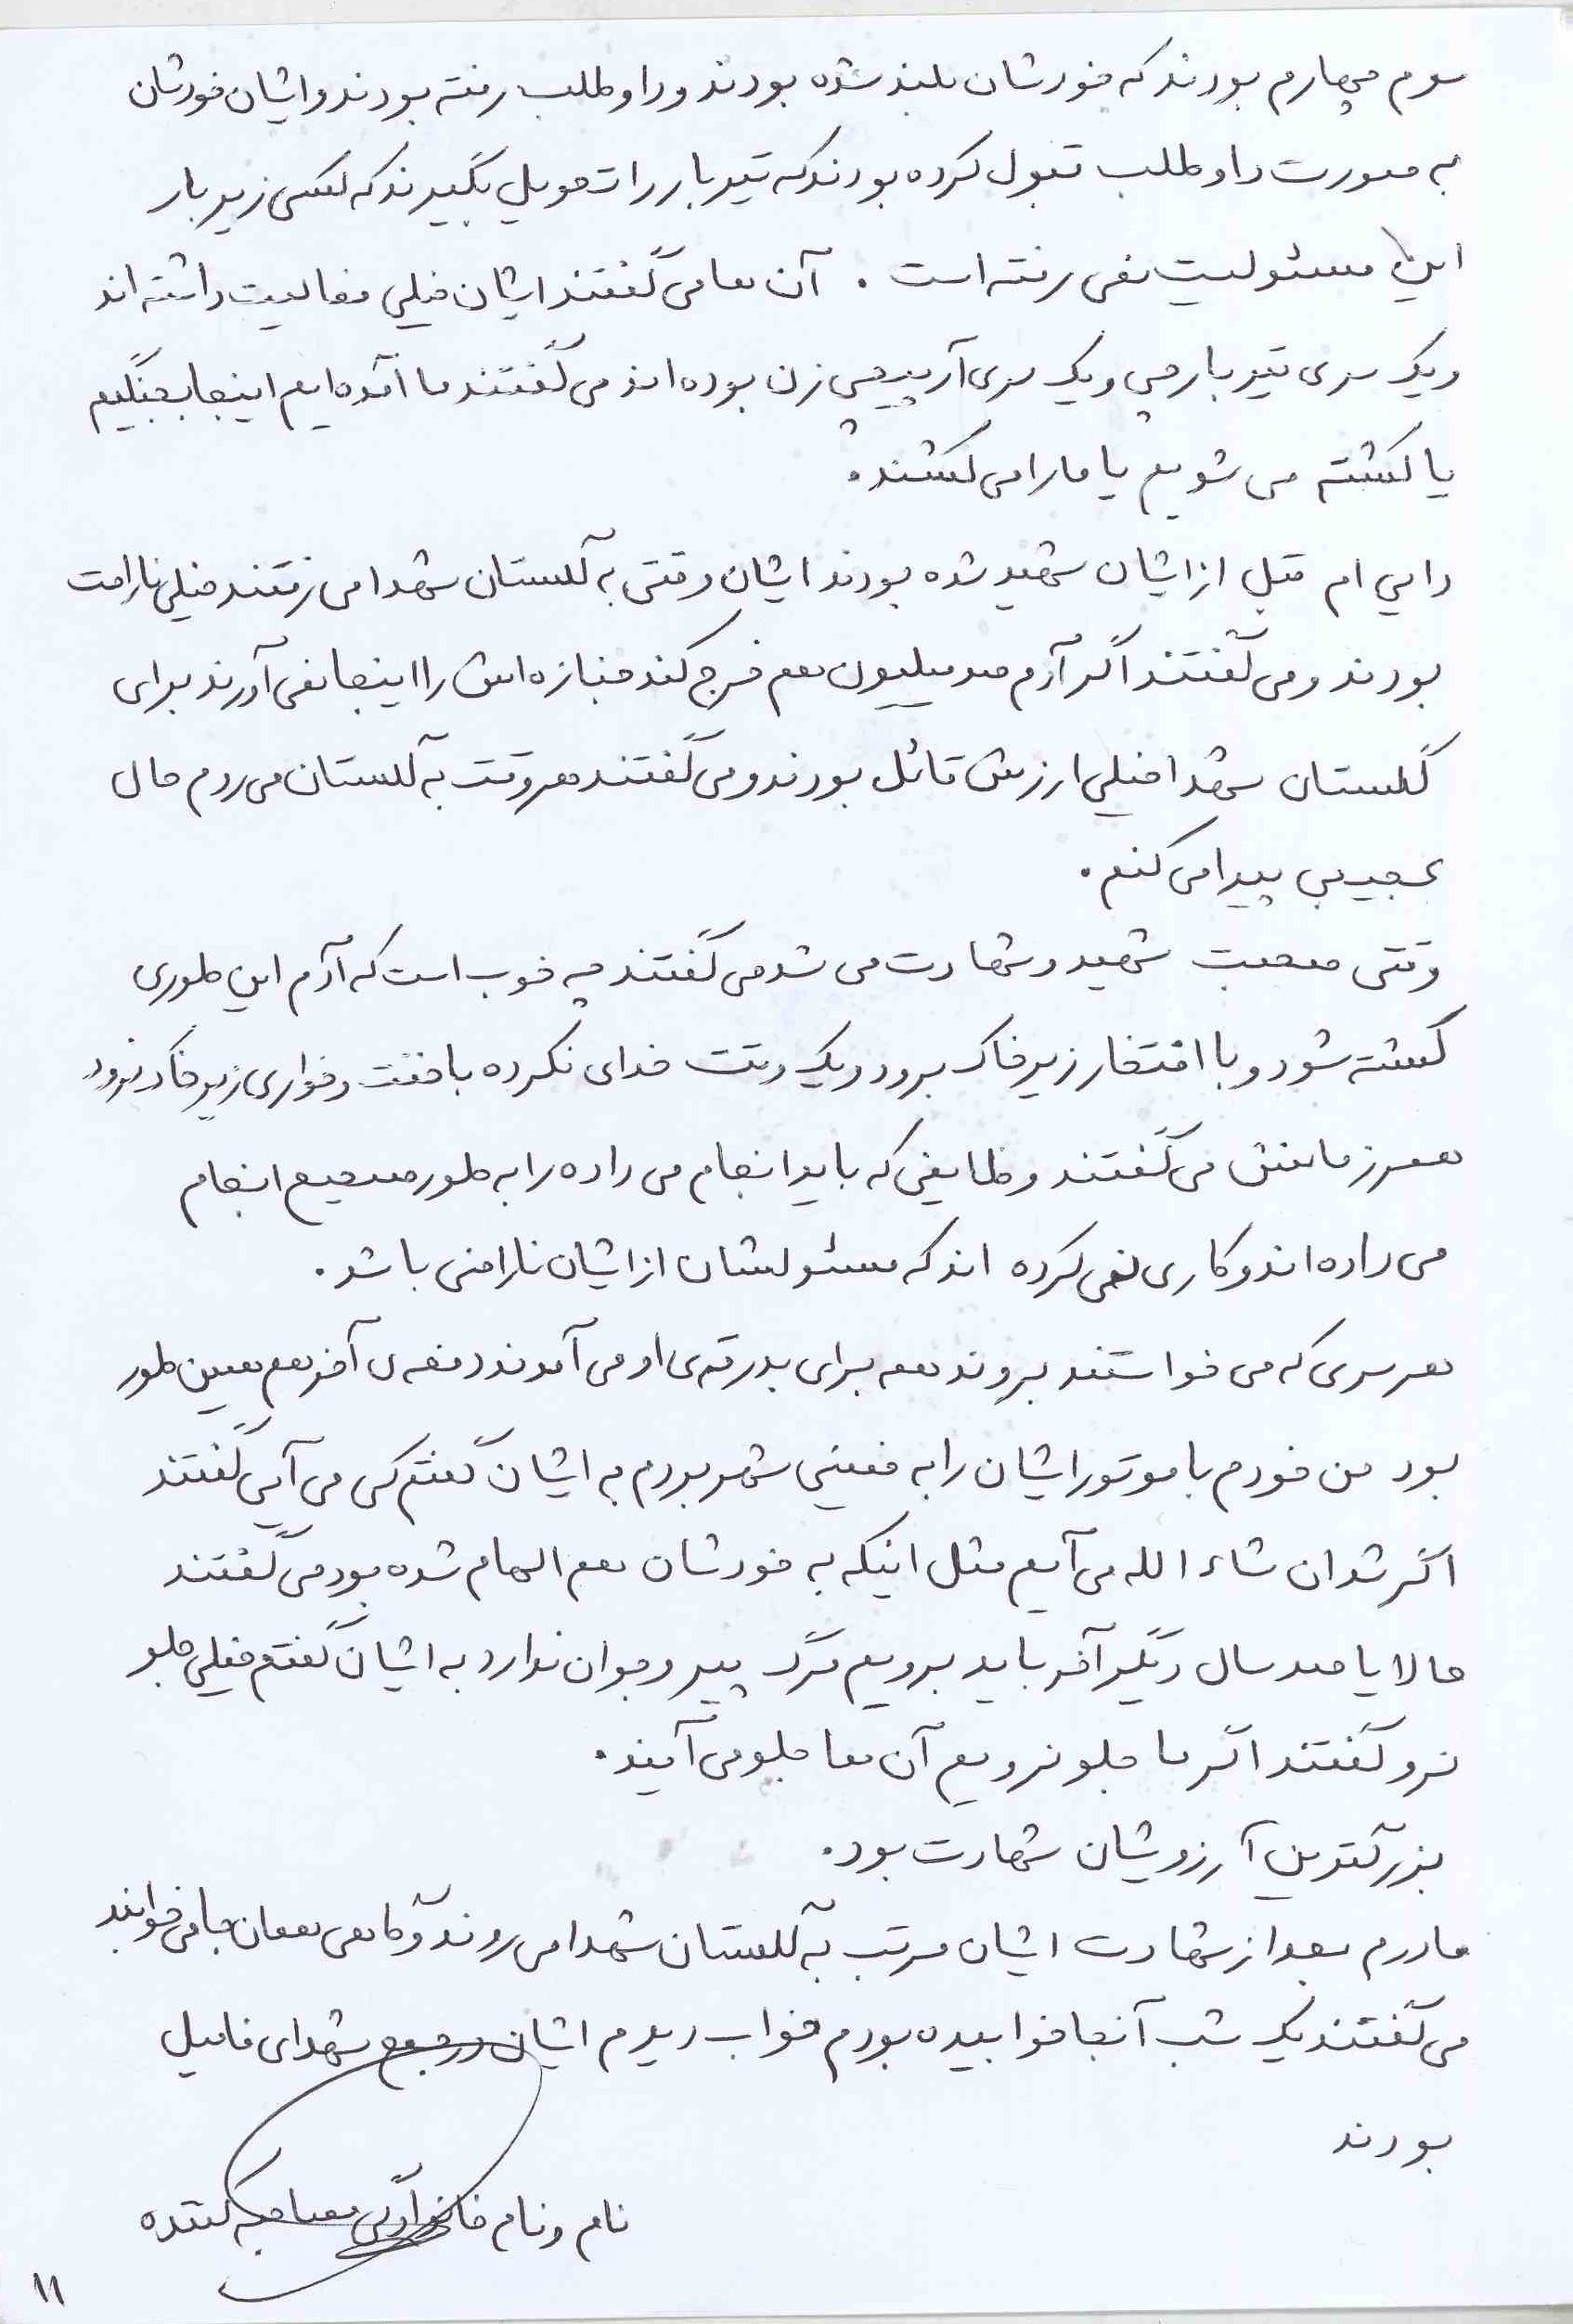 سوم چهارم بودند که خودشان بلند شده بودند و داوطلب رفته بودند و ایشان خودشان
به صورت داوطلب قبول کرده بودند که تیربار را تحویل بگیرند که کسی زیر بار
این مسئولیت نمی رفته است . آن ها می گفتند ایشان خیلی فعالیت داشته اند
و یک سری تیربارچی و یک سری آرپیچی زن بوده اند می گفتند ما آمده ایم اینجا بجنگیم
یا کشته می شویم یا ما را می کشند .
دایی ام قبل از ایشان شهید شده بودند ایشان وقتی به گلستان شهدا می رفتند خیلی ناراحت
بودند و می گفتند اگر آدم صد میلیون هم خرج کند جنازه اش را اینجا نمی آورند برای
گلستان شهدا خیلی ارزش قائل بودند و می گفتند هر وقت به گلستان می روم حال
عجیبی پیدا می کنم .
وقتی صحبت شهید و شهادت می شد می گفتند چه خوب است که آدم این طوری
کشته شود و با افتخار زیر خاک برود و یک وقت خدای نکرده با خفت و خواری زیر خاک نرود
همرزمانش می گفتند وظایفی که باید انجام می داده را به طور صحیح انجام
می داده اند و کاری نمی کرده اند که مسئولشان از ایشان ناراضی باشد .
هر سری که می خواستند بروند همه برای بدرقه ی او می آمدند دفعه ی آخر هم همین طور
بود من خودم با موتور ایشان را به خمینی شهر بردم به ایشان گفتم کی می آیی گفتند
اگر شد ان شاء الله می آیم مثل اینکه به خودشان هم الهام شده بود می گفتند
حالا یا صد سال دیگر آخر باید برویم مرگ پیر و جوان ندارد به ایشان گفتم خیلی جلو
نرو گفتند اگر ما جلو نرویم آن ها جلو می آیند .
بزرگترین آرزویشان شهادت بود .
مادرم بعد از شهادت ایشان مرتب به گلستان شهدا می روند و گاهی همان جا می خوابند
می گفتند یک شب آنجا خوابیده بودم خواب دیدم ایشان در جمع شهدای فامیل
بودند
نام و نام خانوادگی مصاحبه کننده
۱۱